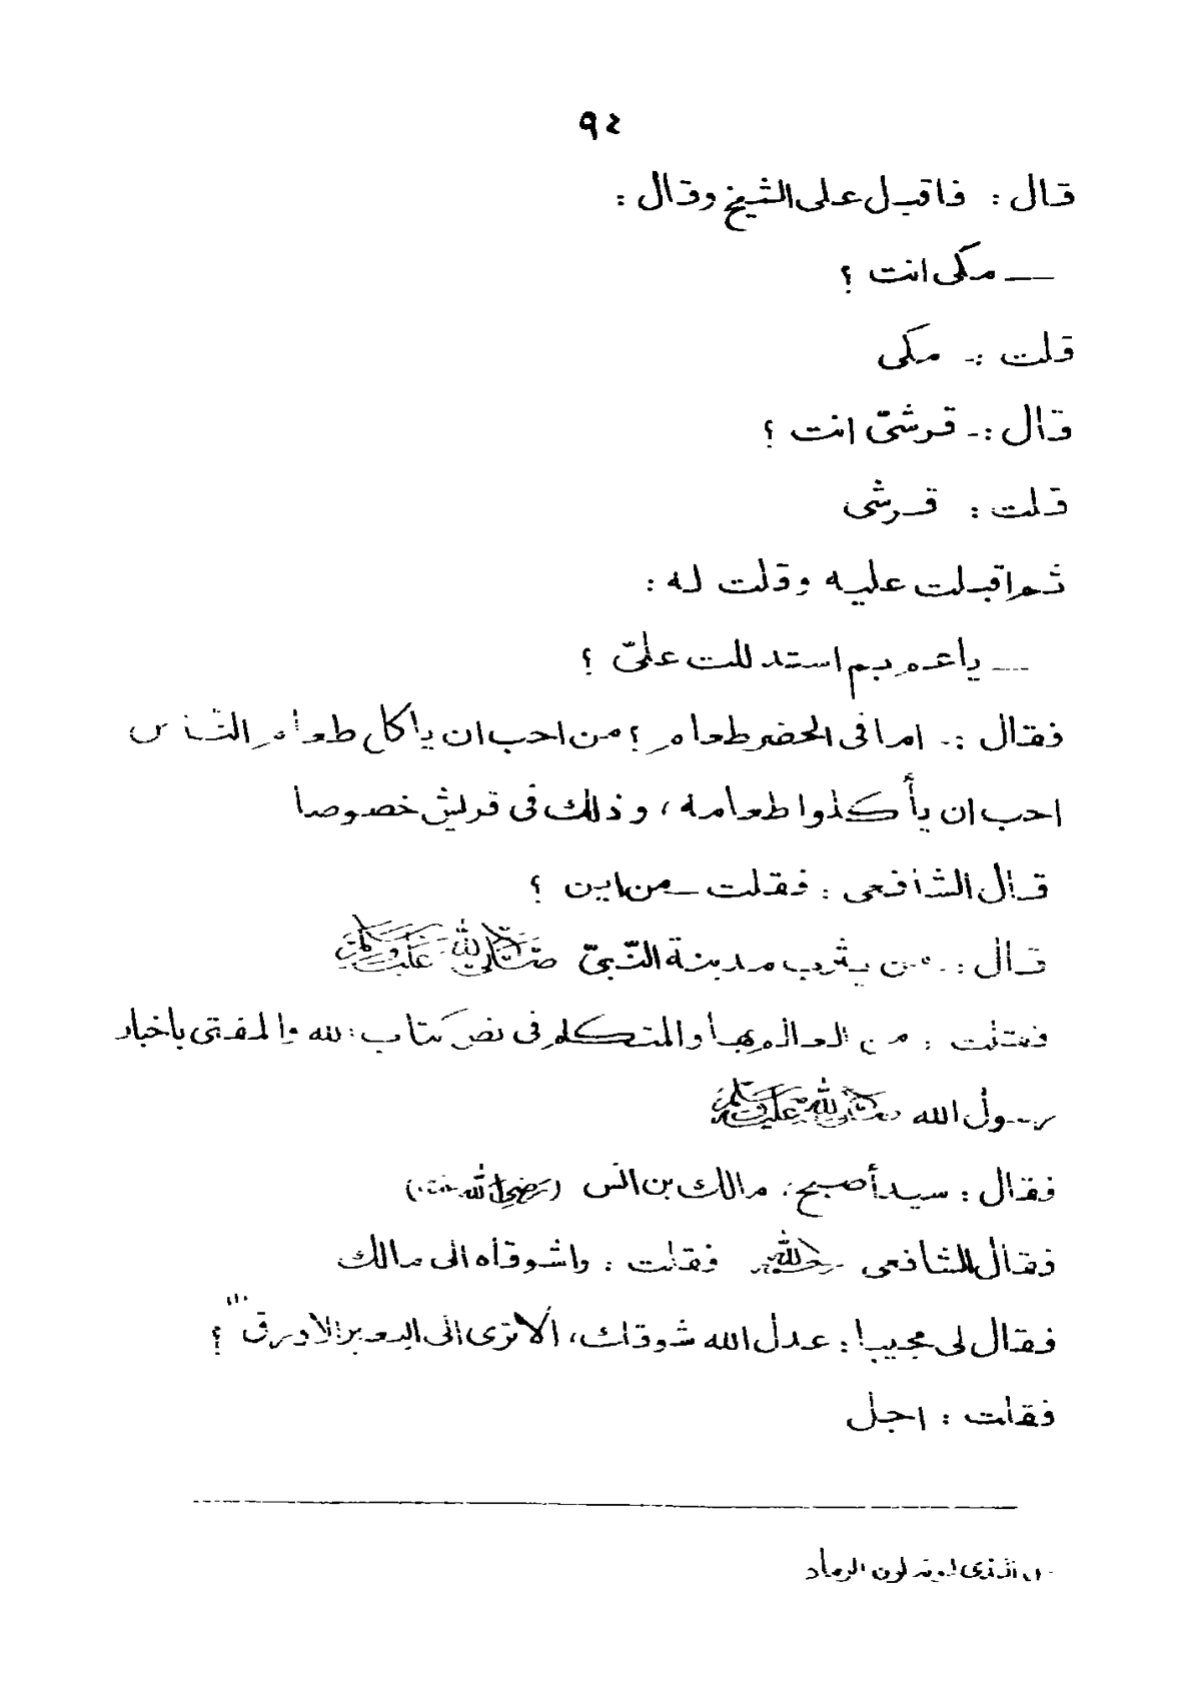 ٩٤
قال : فاقبل على الشيخ وقال :
— مكى انت ؟
قلت :- مكى
قال :- قرشىّ انت ؟
قلت : قرشى
ثم اقبلت عليه وقلت له :
— ياعم بم استدللت علىّ ؟
فقال :- اما فى الحضر طعام ؟ من احب ان ياكل طعام النّاس
احب ان يأكلوا طعامه ، وذلك فى قريش خصوصا
قال الشافعى : فقلت — من اين ؟
قال :- من يثرب مدينة النّبىّ صلى الله عليه وسلم
فقلت : من العالم بها والمتكلم فى نص كتاب الله والمفتى باخبار
رسول الله صلى الله عليه وسلم
فقال : سيد أصبح، مالك بن انس (رضى الله عنه)
فقال الشافعى رحمه الله فقلت : واشوقاه الى مالك
فقال لى مجيبا : عدل الله شوقك، ألا ترى الى البعير الاورق (١) ؟
فقلت : اجل
١- الذى لونه لون الرماد